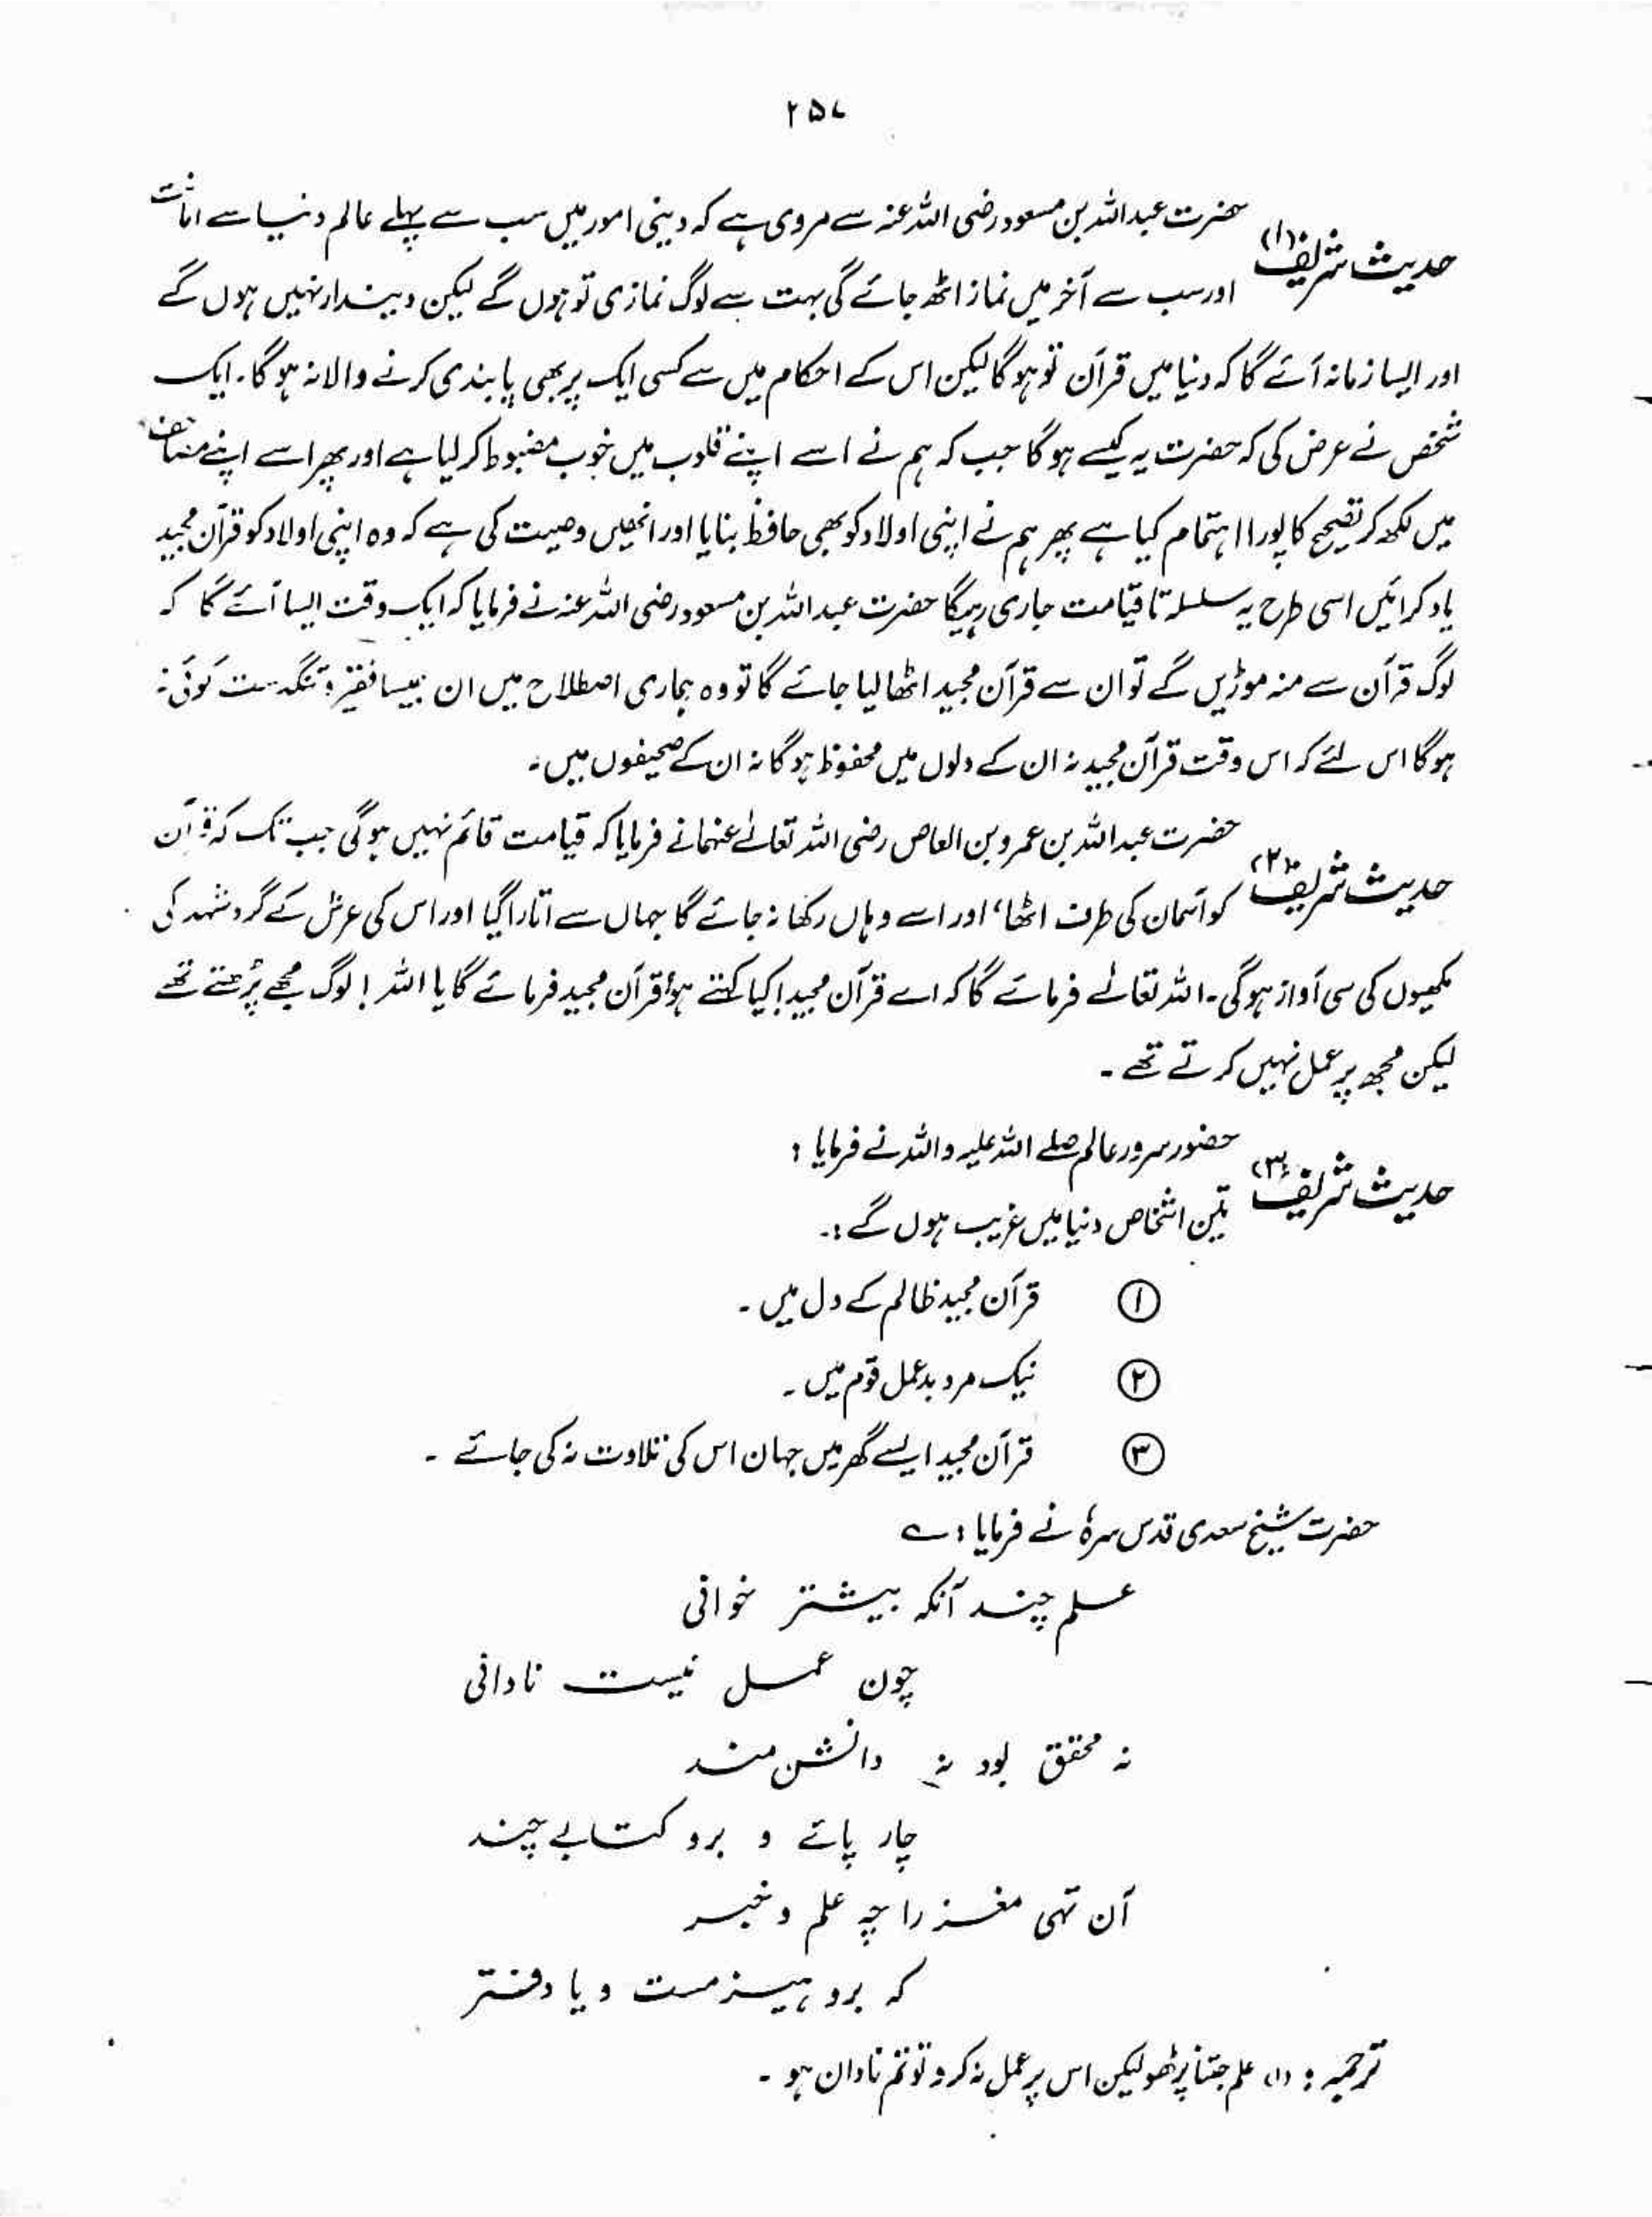 ۲۵۷
حدیث شریف (۱) حضرت عبداللہ بن مسعود رضی اللہ عنہ سے مروی ہے کہ دینی امور میں سب سے پہلے عالم دنیا سے امانت
اور سب سے آخر میں نماز اٹھ جائے گی بہت سے لوگ نمازی تو ہوں گے لیکن دیندار نہیں ہوں گے
اور ایسا زمانہ آئے گا کہ دنیا میں قرآن تو ہوگا لیکن اس کے احکام میں سے کسی ایک پر بھی پابندی کرنے والا نہ ہوگا۔ ایک
شخص نے عرض کی کہ حضرت یہ کیسے ہوگا جب کہ ہم نے اسے اپنے قلوب میں خوب مضبوط کر لیا ہے اور پھر اسے اپنے مصاحف
میں لکھ کر تصحیح کا پورا اہتمام کیا ہے پھر ہم نے اپنی اولاد کو بھی حافظ بنایا اور انھیں وصیت کی ہے کہ وہ اپنی اولاد کو قرآن مجید
یاد کرائیں اسی طرح یہ سلسلہ تا قیامت جاری رہیگا حضرت عبداللہ بن مسعود رضی اللہ عنہ نے فرمایا کہ ایک وقت ایسا آئے گا کہ
لوگ قرآن سے منہ موڑیں گے تو ان سے قرآن مجید اٹھا لیا جائے گا تو وہ ہماری اصطلاح میں ان جیسا فقیر و تنگدست کوئی نہ
ہوگا اس لئے کہ اس وقت قرآن مجید نہ ان کے دلوں میں محفوظ ہوگا نہ ان کے صحیفوں میں۔
حدیث شریف (۲) حضرت عبداللہ بن عمرو بن العاص رضی اللہ تعالےٰ عنہما نے فرمایا کہ قیامت قائم نہیں ہوگی جب تک کہ قرآن
کو آسمان کی طرف اٹھا، اور اسے وہاں رکھا نہ جائے گا جہاں سے اتارا گیا اور اس کی عرش کے گرد شہد کی
مکھیوں کی سی آواز ہوگی۔ اللہ تعالےٰ فرمائے گا کہ اے قرآن مجید! کیا کہتے ہو؟ قرآن مجید فرمائے گا یا اللہ! لوگ مجھے پڑھتے تھے
لیکن مجھ پر عمل نہیں کرتے تھے۔
حدیث شریف (۳) حضور سرور عالم صلے اللہ علیہ والہ نے فرمایا :
تین اشخاص دنیا میں غریب ہوں گے :۔
① قرآن مجید ظالم کے دل میں۔
② نیک مرد بدعمل قوم میں۔
③ قرآن مجید ایسے گھر میں جہان اس کی تلاوت نہ کی جائے۔
حضرت شیخ سعدی قدس سرہٗ نے فرمایا : ؎
علم چند آنکہ بیشتر خوانی
چون عمل نیست نادانی
نہ محقق بود نہ دانش مند
چار پائے و برو کتابے چند
آن تہی مغز را چہ علم و خبر
کہ برو ہیزمست و یا دفتر
ترجمہ : (۱) علم جتنا پڑھو لیکن اس پر عمل نہ کرو تو تم نادان ہو۔